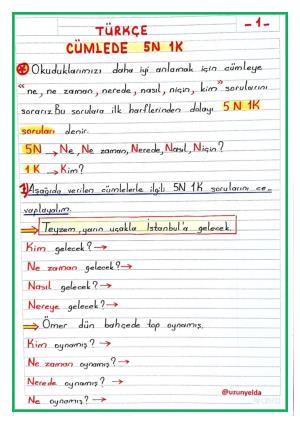 TÜRKÇE
- 1 -
CÜMLEDE 5N 1K
Okuduklarımızı daha iyi anlamak için cümleye
"ne, ne zaman, nerede, nasıl, niçin, kim" sorularını
sorarız. Bu sorulara ilk harflerinden dolayı 5N 1K
soruları denir.
5N → Ne, Ne zaman, Nerede, Nasıl, Niçin?
1K → Kim?
1) Aşağıda verilen cümlelerle ilgili 5N 1K sorularını ce-
vaplayalım.
⇒ Teyzem, yarın uçakla İstanbul'a gelecek.
Kim gelecek? →
Ne zaman gelecek? →
Nasıl gelecek? →
Nereye gelecek? →
⇒ Ömer dün bahçede top oynamış.
Kim oynamış? →
Ne zaman oynamış? →
Nerede oynamış? →
@uzunyelda
Ne oynamış? →